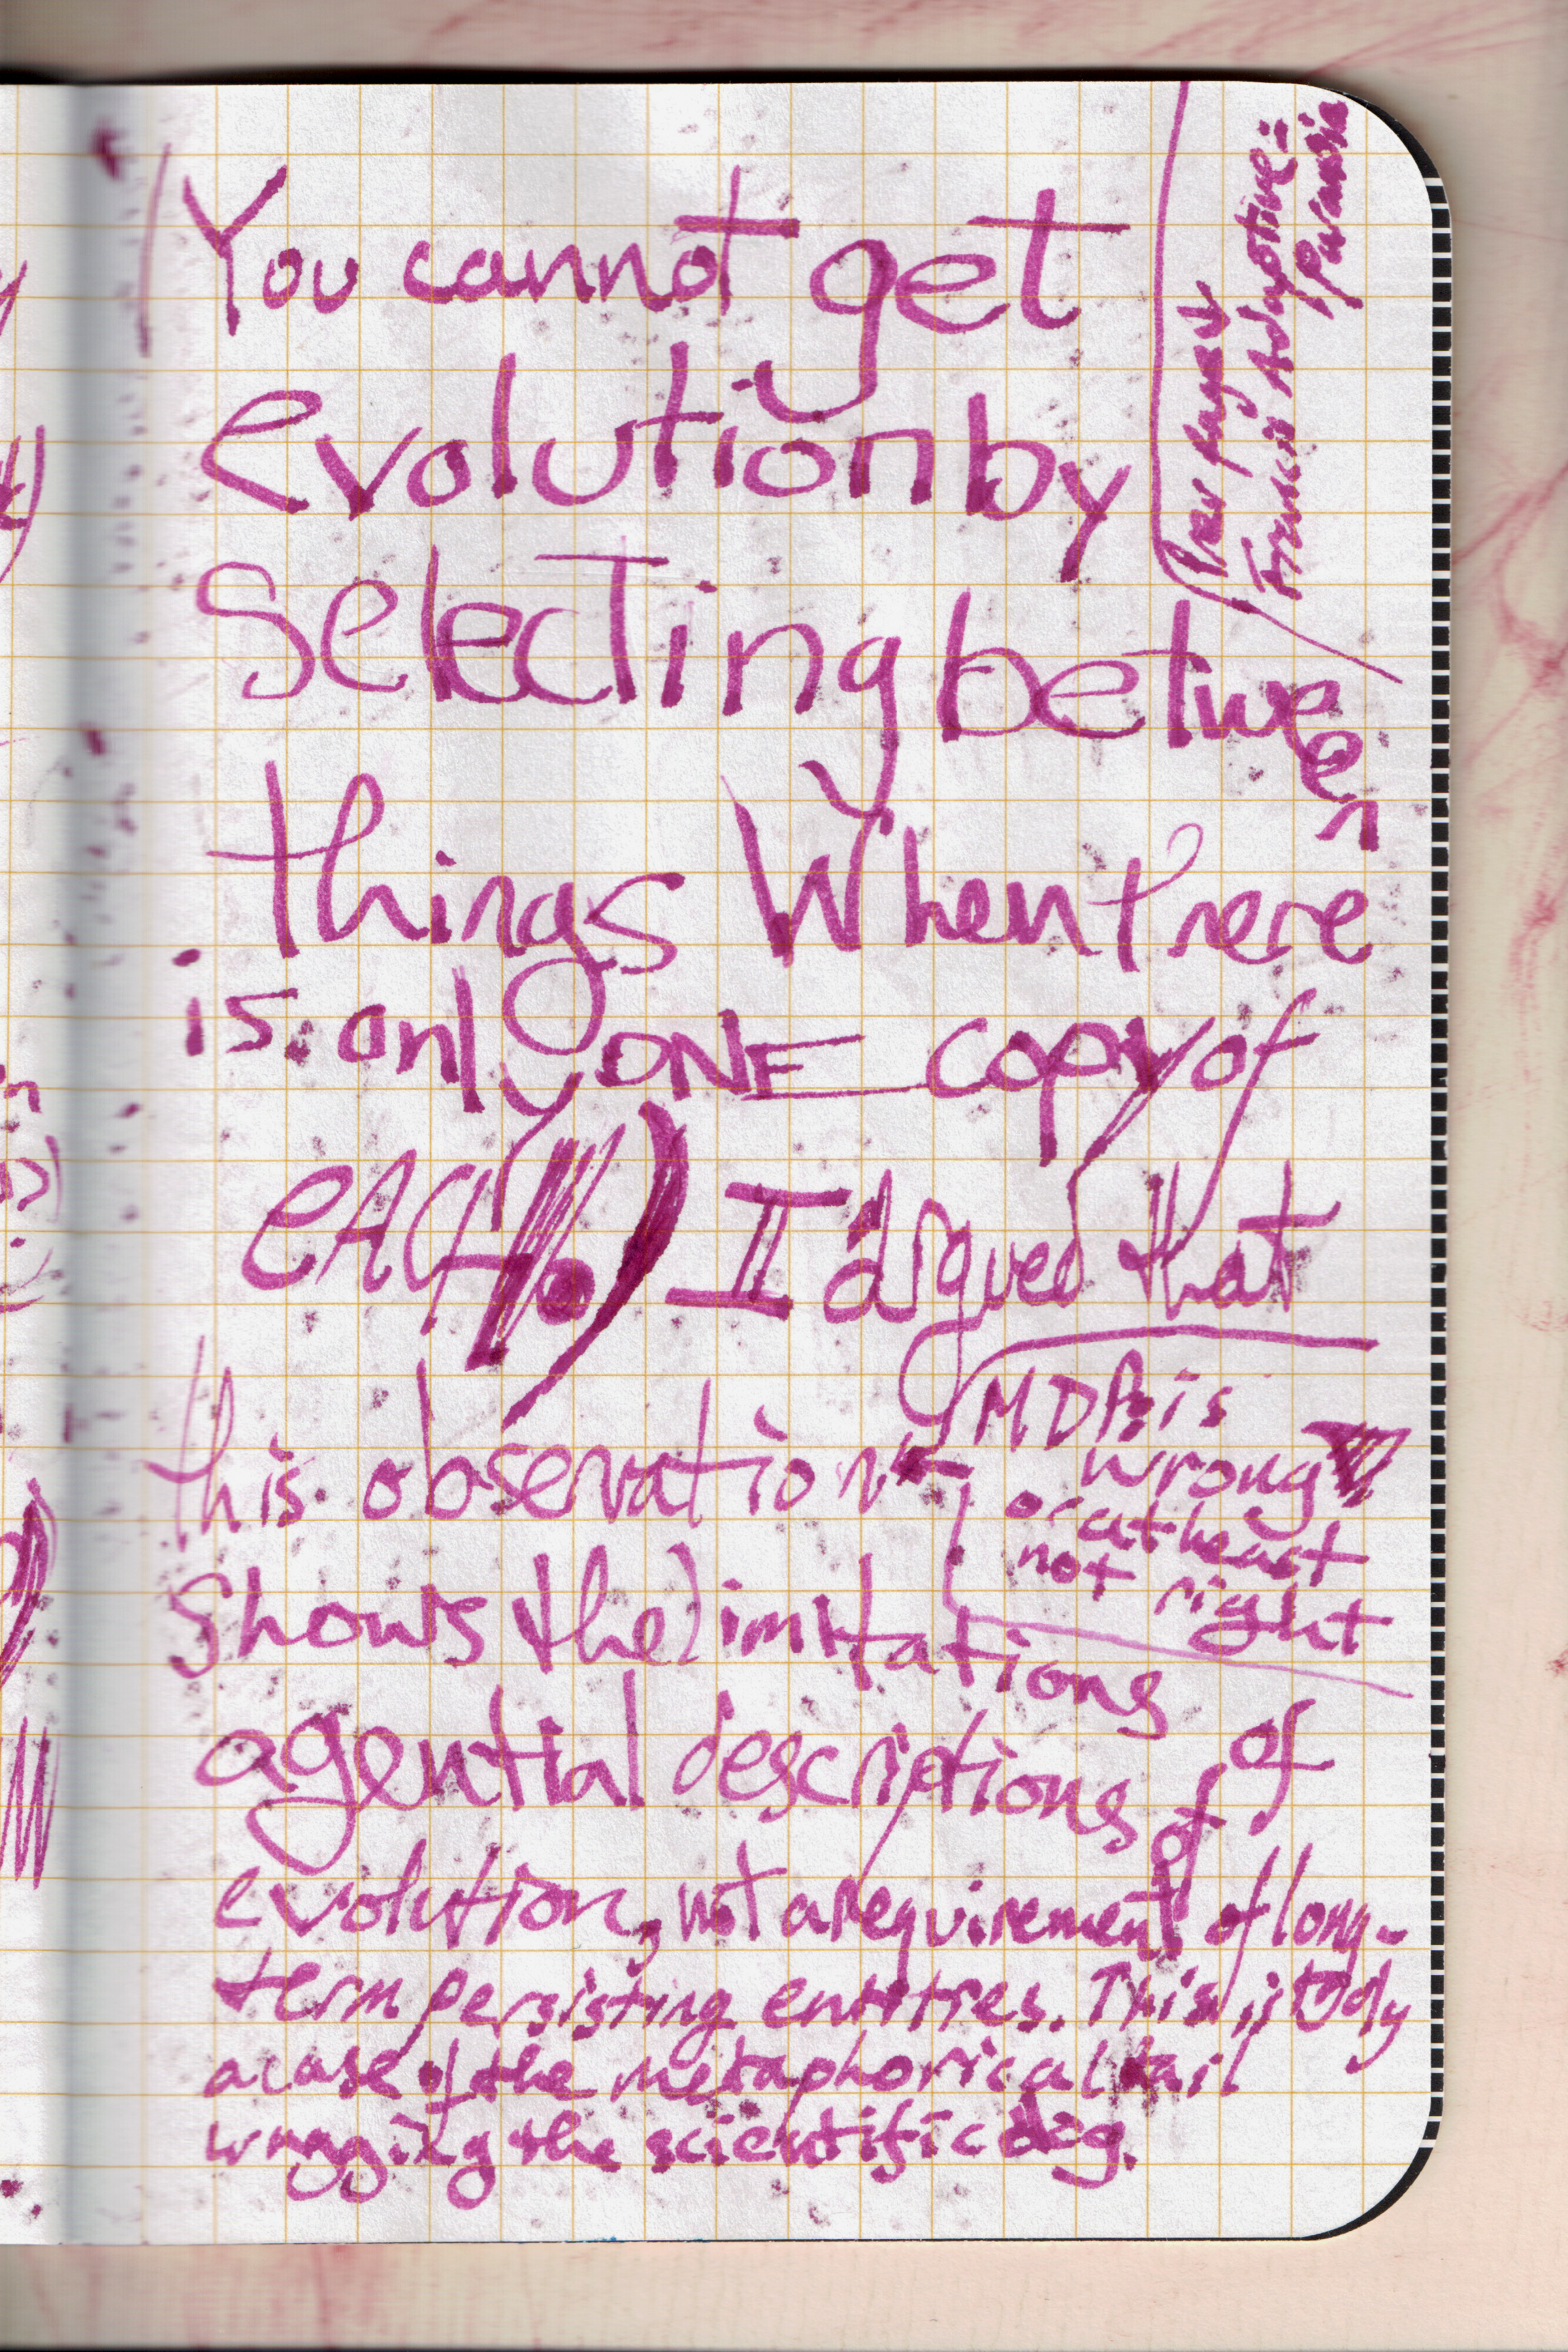 You cannot get
evolution by
Selecting between
things When there
is only ONE copy of
EACH.) I argued that
this observation
shows the limitations
agential descriptions of of
evolution, not a requirement of long-
term persisting entities. This is
a case of the metaphorical tail
wagging the scientific dog.
MDP is
wrong
or at least
not right
Prev page
Francis Adaptive
Paranoia